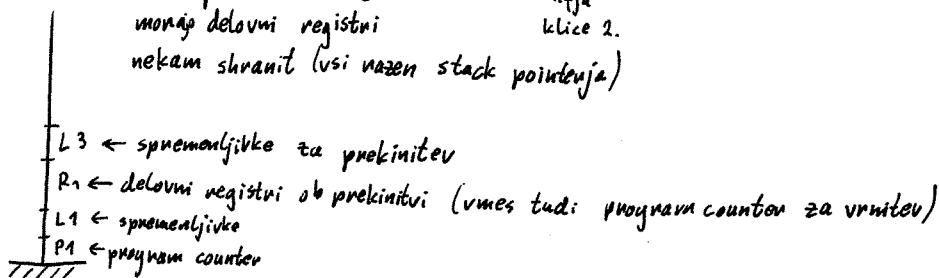 morajo delovni registri klice 2.
nekam shranit (vsi razen stack pointerja)
L3 ← spremenljivke za prekinitev
R1 ← delovni registri ob prekinitvi (vmes tudi program counter za vrnitev)
L1 ← spremenljivke
P1 ← program counter